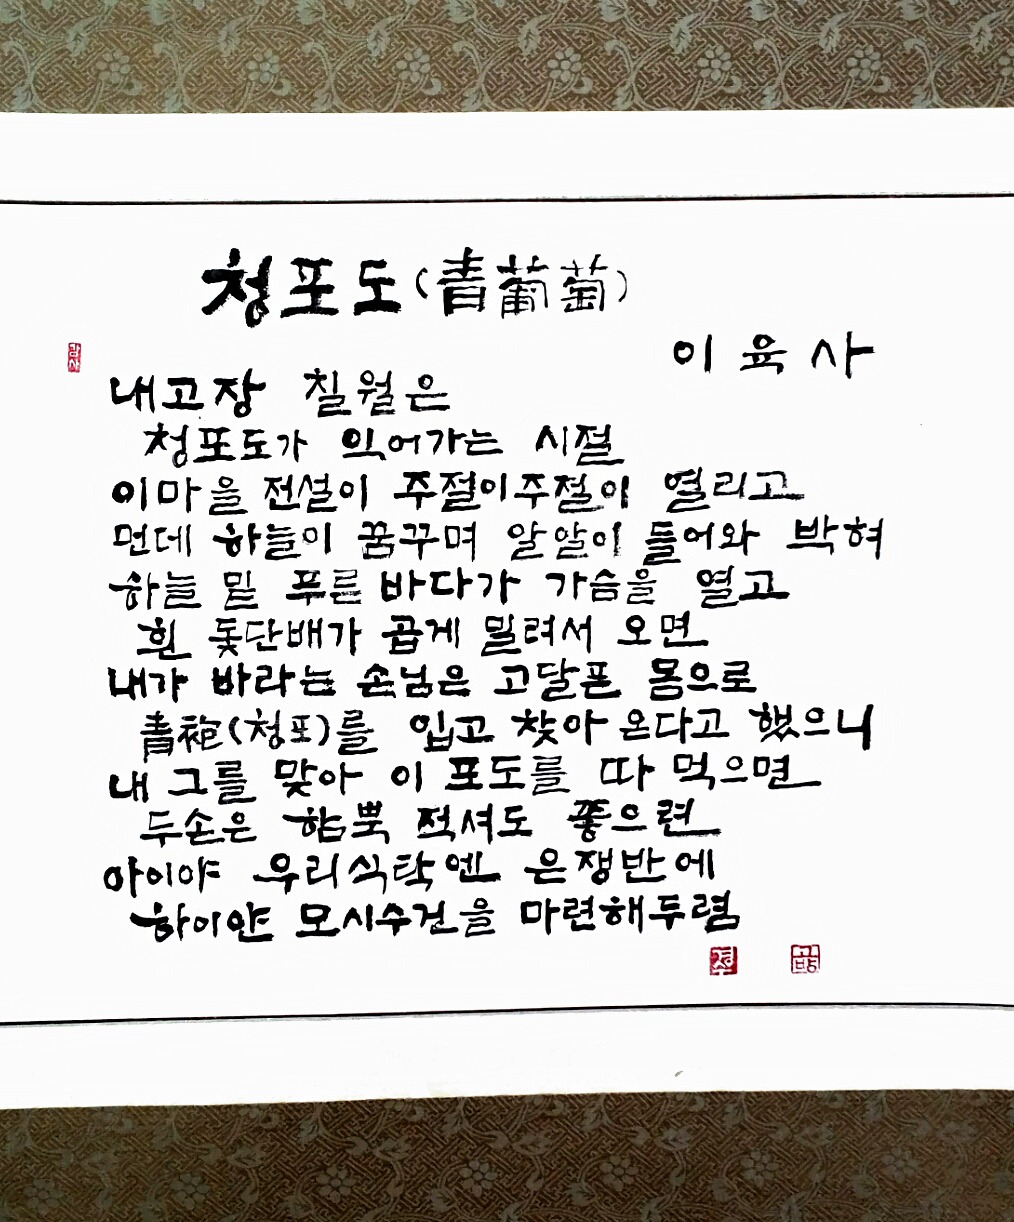 청포도(靑葡萄)
이육사
내고장 칠월은
청포도가 익어가는 시절
이마을 전설이 주절이주절이 열리고
먼데 하늘이 꿈꾸며 알알이 들어와 박혀
하늘 밑 푸른 바다가 가슴을 열고
흰 돛단배가 곱게 밀려서 오면
내가 바라는 손님은 고달픈 몸으로
靑袍(청포)를 입고 찾아 온다고 했으니
내 그를 맞아 이 포도를 따 먹으면
두손은 함뿍 적셔도 좋으련
아이야 우리식탁엔 은쟁반에
하이얀 모시수건을 마련해두렴